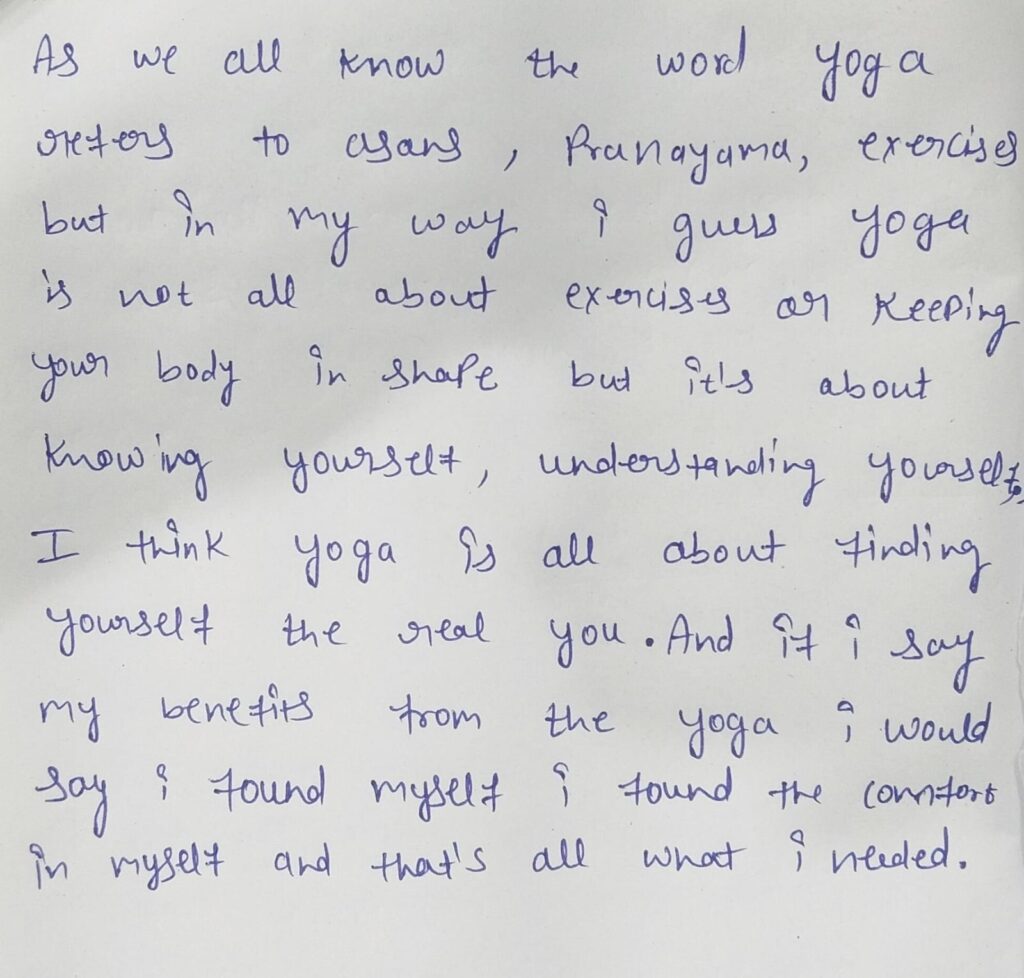 As we all know the word yoga
refers to asans, Pranayama, exercises
but in my way i guess yoga
is not all about exercises or keeping
your body in shape but it's about
knowing yourself, understanding yourself,
I think yoga is all about finding
yourself the real you. And if i say
my benefits from the yoga i would
say i found myself i found the comfort
in myself and that's all what i needed.